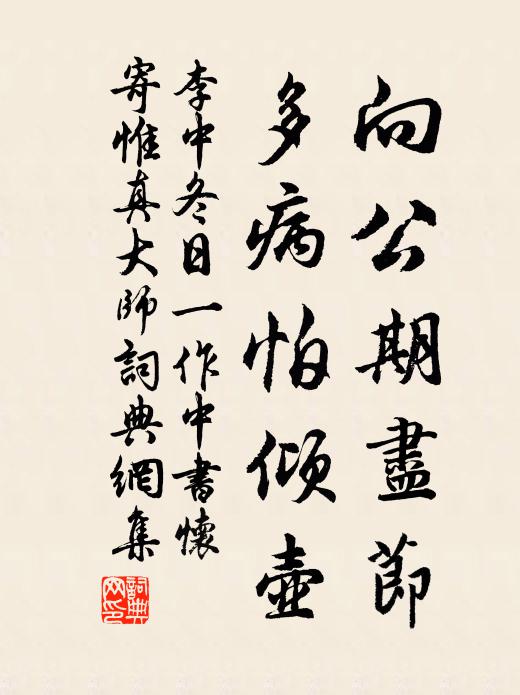 向公期盡節
多病怕傾壺
李中冬日一作中書懷
寄惟真大師詞典網集
詞典网印